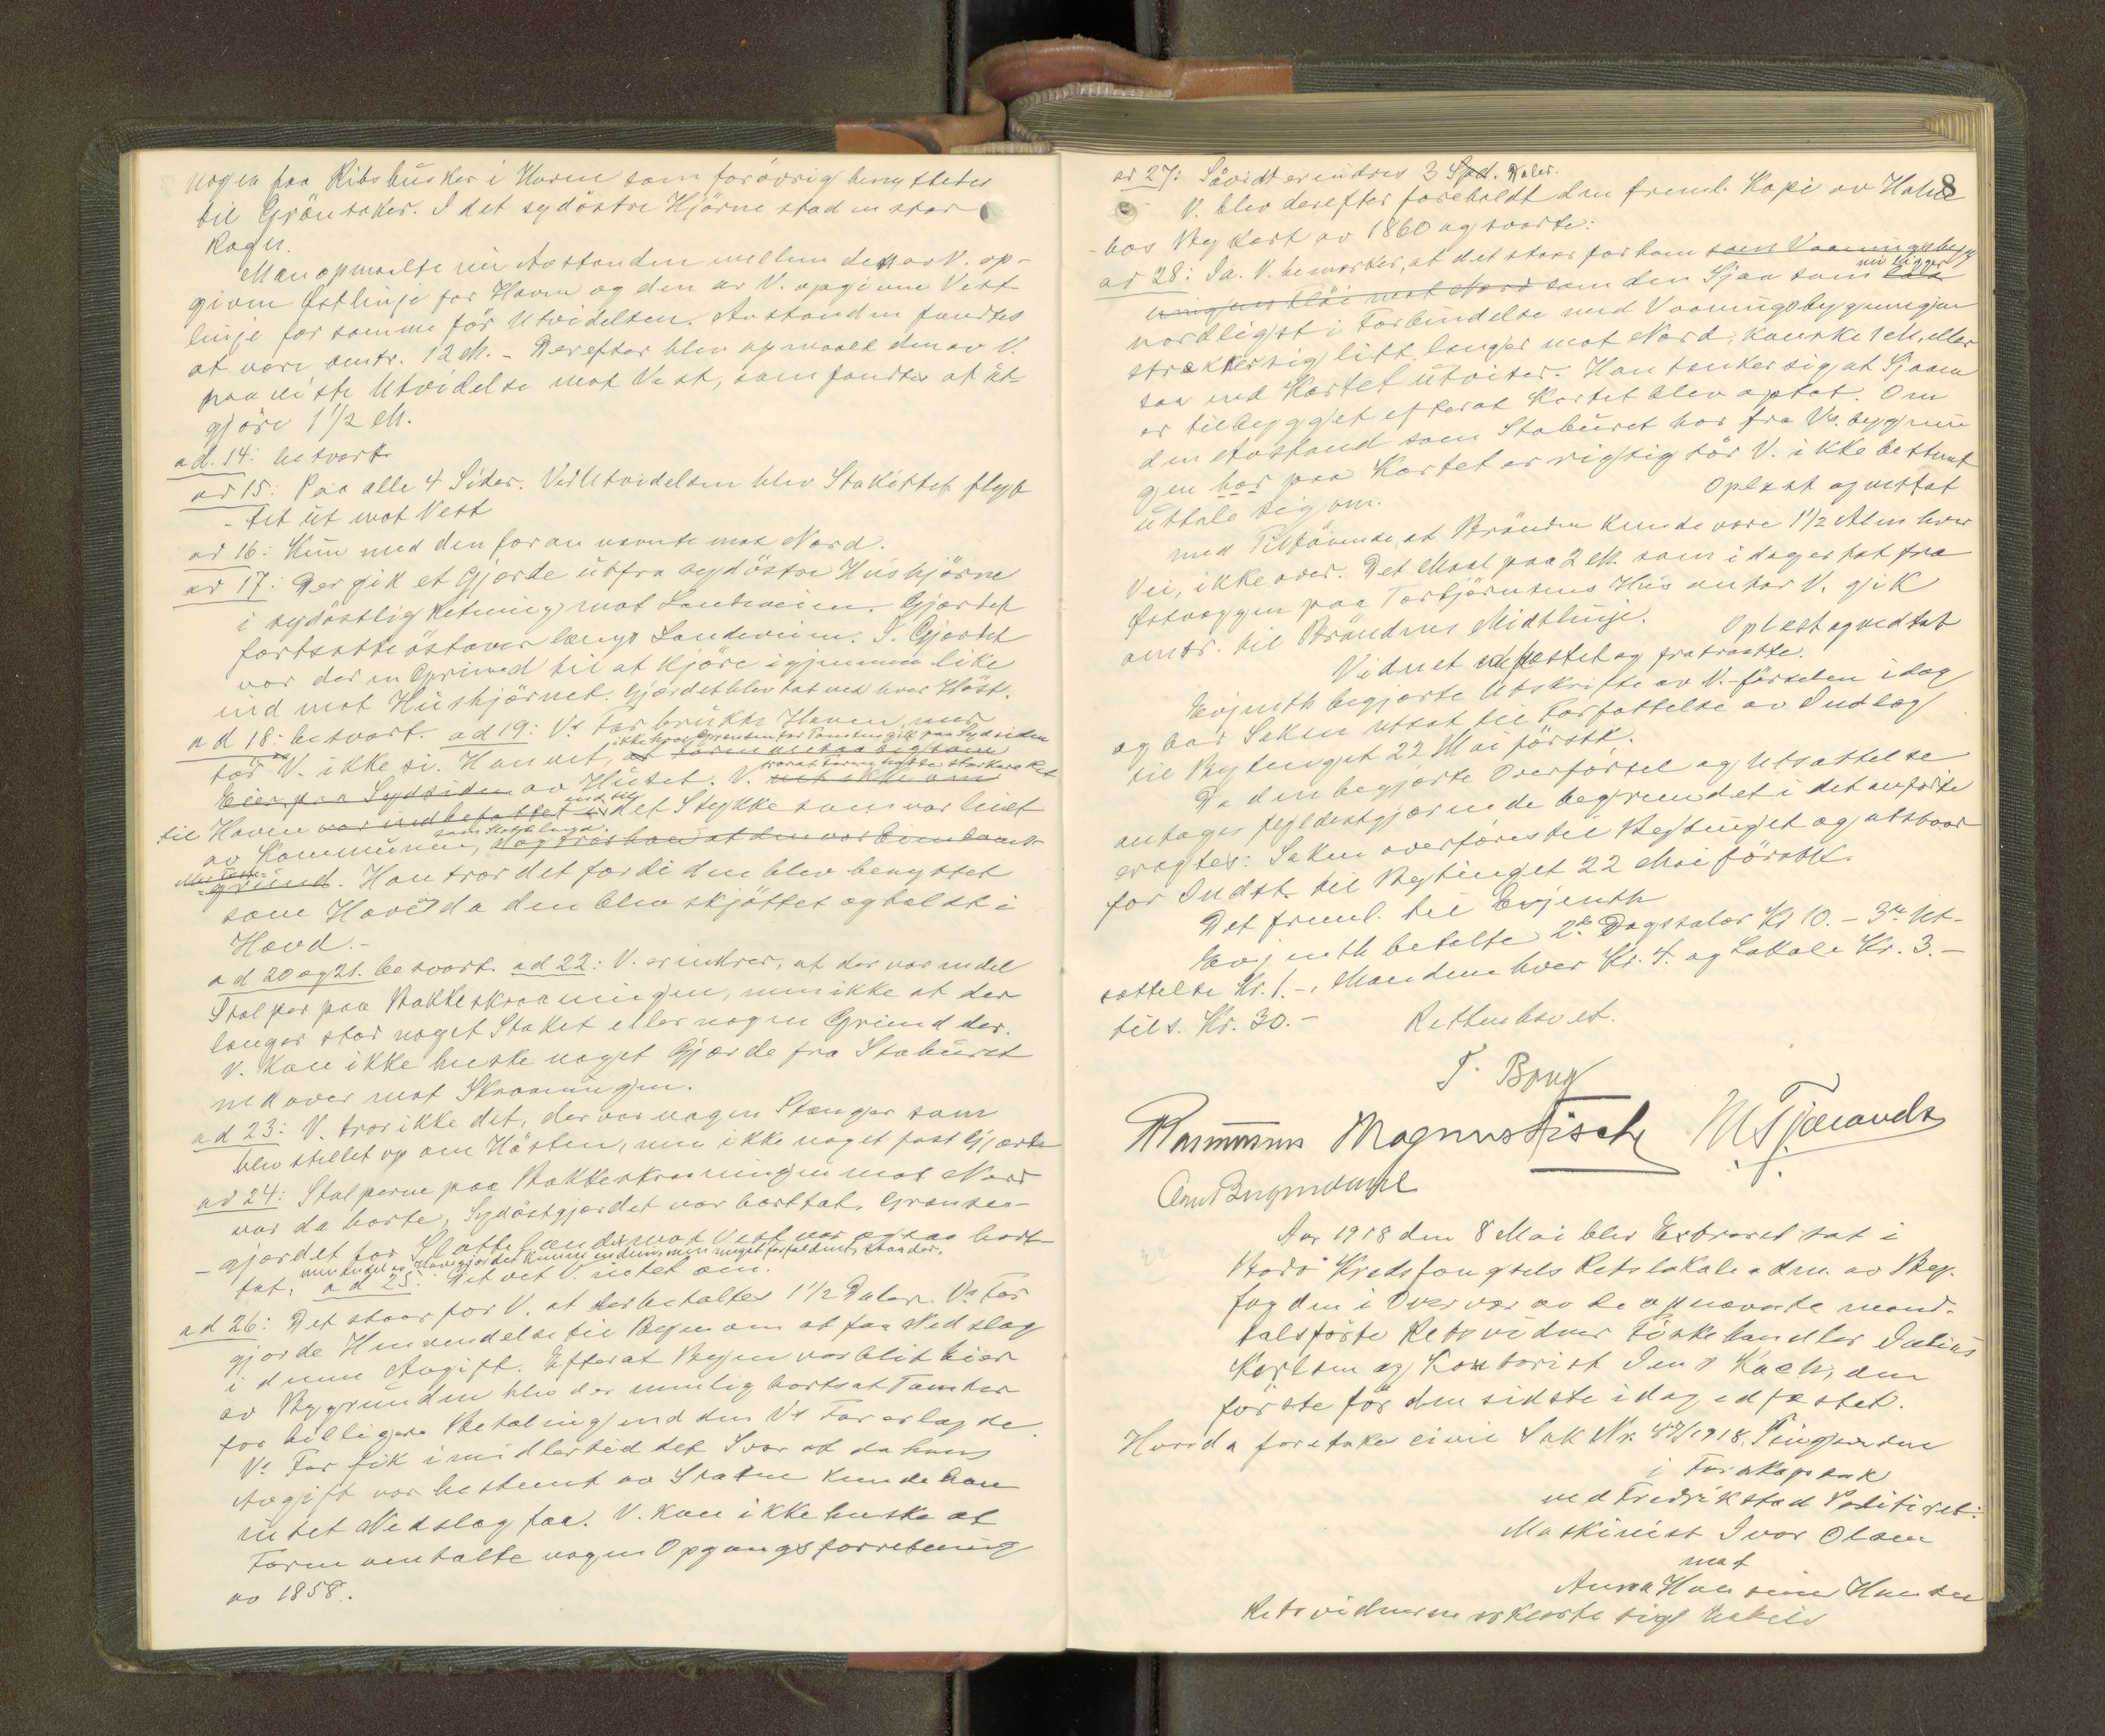 nogen faa Ribsbusker i Haven som forøvrig benyttedes
til Grøntsaker. I det sydøstre Hjørne stod en stor
Rogn.
Man opmaalte nu Avstanden mellem den av V. op-
givne Østlinje for Haven og den av V. opgivne Vest
linje for samme før Utvidelsen. Avstanden fandtes
at være omtr. 12 M. - Derefter blev opmaalt den av V.
paaviste Utvidelse mot Vest, som fandtes at ut-
gjøre 1 1/2 M.
ad. 14: besvart.
ad 15: Paa alle 4 Sider. Ved Utvidelsen blev Stakittet flyt
- tet ut mot Vest
ad 16: Kun med den foran nævnte mot Nord.
ad 17: Der gik et Gjærde ut fra sydøstre Hushjørne
i sydøstlig Retning mot Landeveien. Gjærdet
fortsatte østover langs Landeveien. I Gjærdet
var der en Grind til at kjøre igjennem like
ind mot Hushjørnet. Gjærdet blev tat ned hver Høst.
ad 18: besvart. ad 19: Vs Far brukte Haven, mer
ikke hvor Grænsen for Tomten gik paa Sydsiden
tør V. ikke si. Han vet,
Eier paa Sydsiden av Huset. V. vet ikke om
til Haven var indbefattet i det Stykke som var leiet
av Kommunen,
grund. Han tror det fordi den blev benyttet
som Have da den blev skjøttet og holdt i
Hævd.-
ad 20 og 21. besvart. ad 22: V. erindrer, at der var en del
Stolper paa Bakkeskraaningen, men ikke at der
længer stod noget Staket eller nogen Grind der.
V. kan ikke huske noget Gjærde fra Staburet
nedover mot Skraaningen.
ad 23: V. tror ikke det, der var nogen Stænger som
blev stillet op om Høsten, men ikke noget fast Gjærde
ad 24: Stolperne paa Bakkeskraaningen mot Nord
var da borte, Sydøstgjærdet var borttat, Grænse-
- gjærdet for Slottelandet mot Vest var ogsaa bort
men endel av Havegjærdet kunne endnu, men meget forfaldent, staa der.
tat, ad 25: Det vet V. intet om.
ad 26: Det staar for V. at der betaltes 1 1/2 Daler. Vs Far
gjorde Henvendelse til Byen om at faa Nedslag
i denne Avgift. Efterat Byen var blit Eier
av Bygrunden blev der nemlig bortsat Tomter
for billigere Betaling end den Vs Far erlagde.
Vs Far fik imidlertid det Svar at da hans
Avgift var bestemt av Staten kunde han
intet Nedslag faa. V. kan ikke huske at
Faren omtalte nogen Opgangsforretning
av 1858.
8
ad 27: Såvidt erindres 3 Spd. Daler.
V. blev derefter foreholdt den freml. Kopi av
- hos Bykart av 1860 og svarte:
ad 28: Ja. V. bemærker, at det staar for ham som Vaaningsbyg
nu ligger
ningens Fløi mot Nord som den Sjaa som
nordligst i Forbindelse med Vaaningsbygningen
strækker sig litt længer mot Nord, kanske 1 M. eller
saa end Kartet utviser. Han tænker sig, at Sjaaen
er tilbygget efterat Kartet blev optat. Om
den Avstand som Staburet har fra Vs. bygnin
gen har paa Kartet er rigtig tør V. ikke bestemt
uttale sig om. Oplæst og vedtat
med Tilføiende at Brønden kunde være 1 1/2 Alen hver
Vei, ikke over. Det Maal paa 2 M. som i dag er tat fra
Østvæggen paa Torbjørnsens Hus antar V. gik
omtr. til Brøndens Midtlinje. Oplæst og vedtat
Vidnet edfæstet og fratraadte.
Evjenth begjærte Utskrift av V.-førselen idag
og bad Saken utsat til Forfattelse av Indlæg
til Bytinget 22 Mai førstk.
Da den begjærte Overførsel og Utsættelse
antages fyldestgjørende begrundet i det anførte
eragtes: Saken overføres til Bytinget og utstaar
for Indst. til Bytinget 22 Mai førstk.
Det freml. til Evjenth
Evjenth betalte 2de Dagstaler Kr 10.- 3de Ut-
sættelse Kr. 1.-, Mændene hver Kr. 4. og Lokale Kr. 3.-
tils. Kr. 30.- Retten hævet.
Magnus Fisch
Aar 1918 den 8 Mai blev Extraret sat i
Bodø Kredsfængsels Retslokale adm. av By-
fogden i Overvær av de opnævnte mand-
talsførte Retsvidner Fiskehandler Julius
Karlsen og Kontorist Jens Koch, den
første før den sidste idag edfæstet.
Hvorda foretokes civil Sak Nr. 47/1918. Tingsvidne
i Farskapssak
ved Fredrikstad Politiret:
Maskinist Ivar Olsen
mot
Anna Hansine Hansen
Retsvidnerne erklærte sig habile